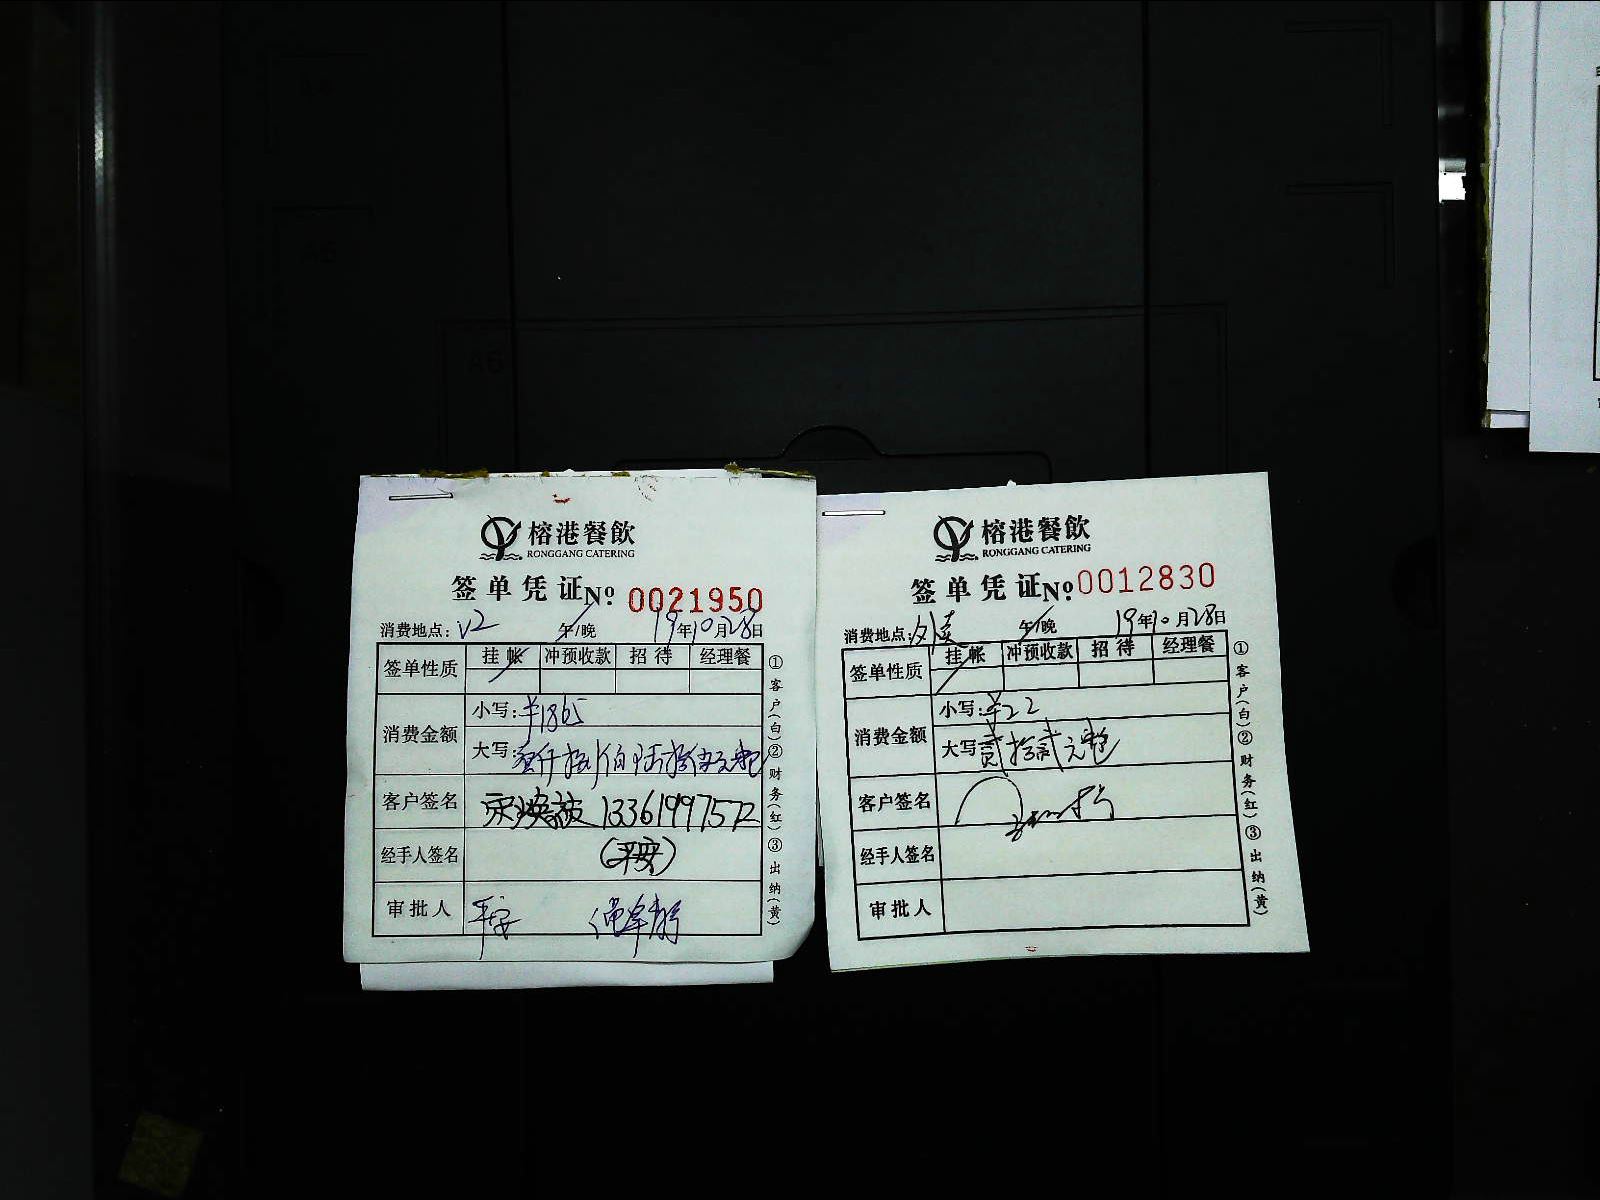 A5
A6
榕港餐飲
RONGGANG CATERING
签单凭证 Nº 0021950
消费地点：V2 午/晚 19年10月28日
签单性质 挂帐 冲预收款 招待 经理餐
消费金额 小写：¥1865
大写：壹仟捌佰陆拾伍元整
客户签名 13361997572
经手人签名 (平安)
审批人 平安
①客户(白)②财务(红)③出纳(黄)
榕港餐飲
RONGGANG CATERING
签单凭证 Nº 0012830
消费地点：外卖 午/晚 19年10月28日
签单性质 挂帐 冲预收款 招待 经理餐
消费金额 小写：¥22
大写：贰拾贰元整
客户签名
经手人签名
审批人
①客户(白)②财务(红)③出纳(黄)